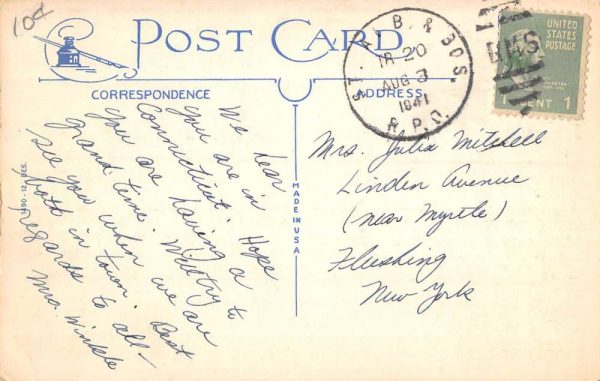 10¢
POST CARD
CORRESPONDENCE
ADDRESS
ST. A. B. & BOS.
TR 20
AUG 3
1941
R.P.O.
RMS
UNITED
STATES
POSTAGE
CENT 1
We hear
you are in
Connecticut. Hope
you are having a
grand time. Will try to
see you when we are
both in town. Best
regards to all —
Mrs. Winkle
MADE IN USA
Mrs. Julia Mitchell
Linden Avenue
(near Myrtle)
Flushing
New York